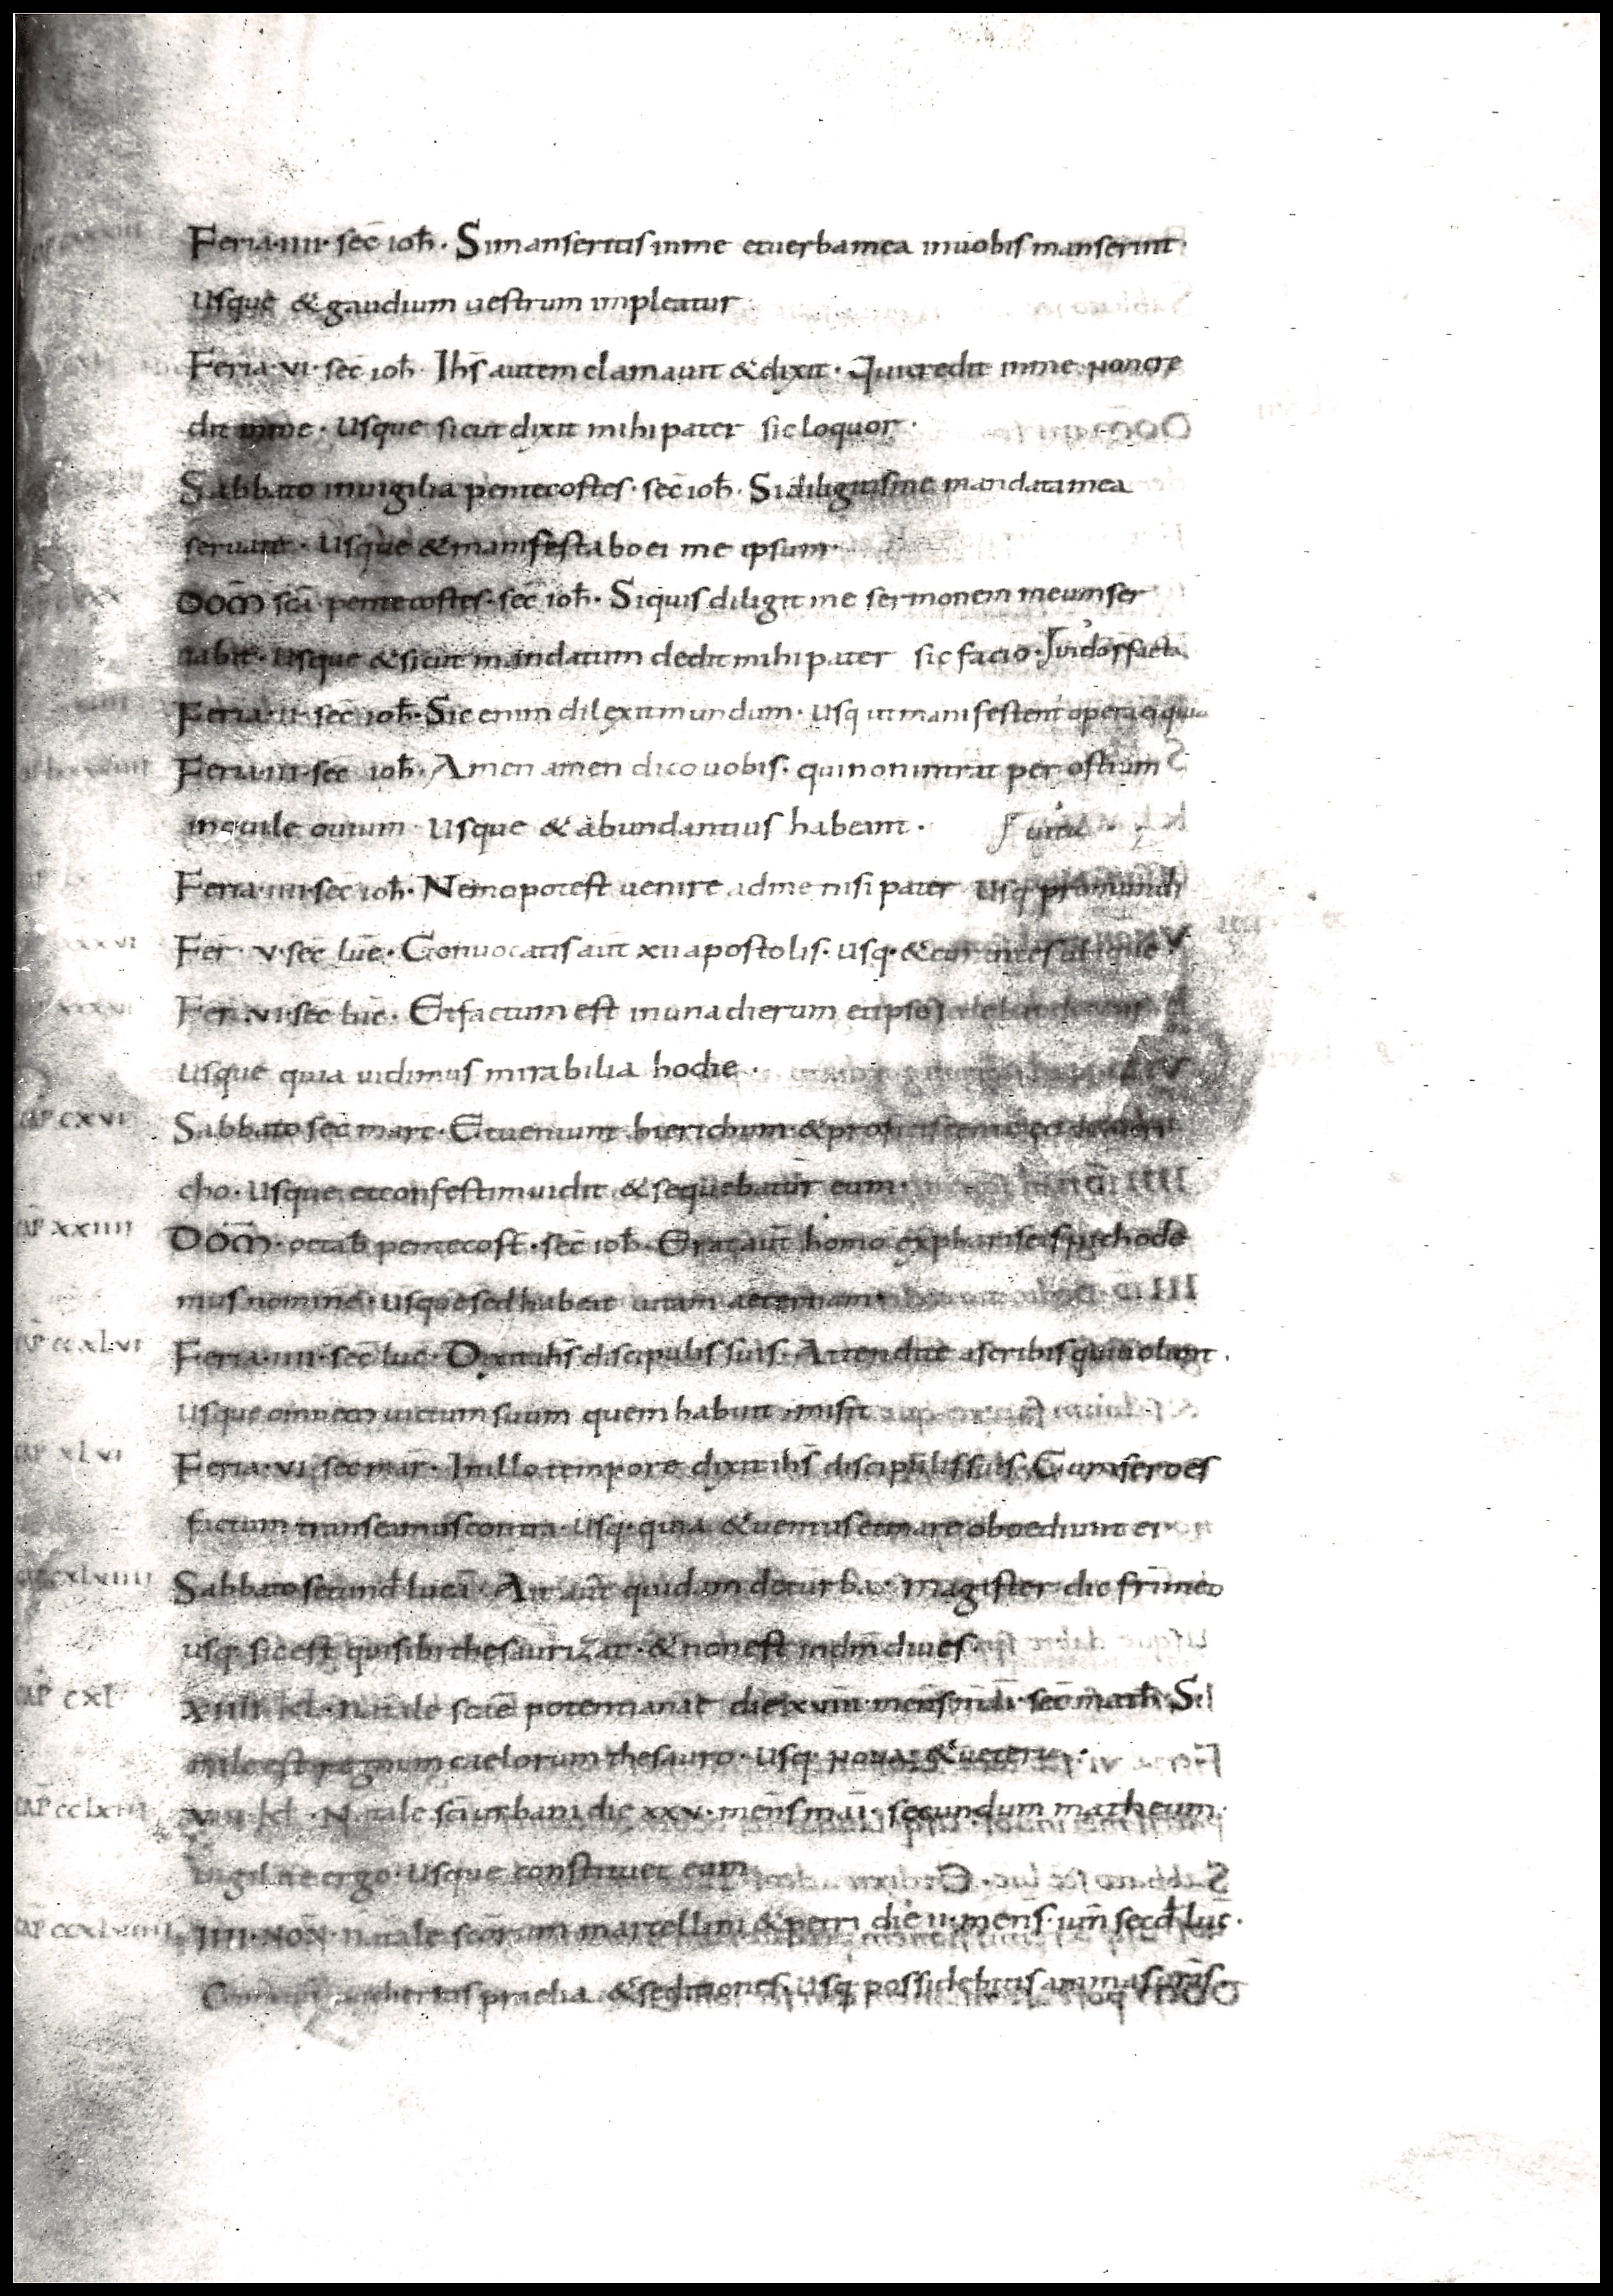 Feria·iiii· sec̄ ioh̄· Simanseritis inme etuerbamea inuobis manserint·
Usque &gaudium uestrum impleatur
Feria·vi· sec̄ ioh̄· Ih̄s autem clamauit &dixit· Quicredit inme noncre
dit inme· Usque sicut dixit mihi pater sic loquor·
Sabbato inuigilia pentecostes· sec̄ ioh̄· Sidiligitisme mandatamea
seruate· Usque &manifestabo ei me ipsum·
Dom̄ sc̄i pentecostes· sec̄ ioh̄· Siquis diligit me sermonem meum ser
uabit· Usque &sicut mandatum dedit mihi pater sic facio·
Feria·ii· sec̄ ioh̄· Sic enim dilexitmundum· Usq utmanifestent opera ei quia
Feria·iii· sec̄ ioh̄· Amen amen dico uobis· quinonintrat per ostium
inouile ouium· Usque & abundantius habeant·
Feria·iiii· sec̄ ioh̄· Nemopotest uenire adme nisi pater Usq promundi
Fer· v· sec̄ luc̄· Conuocatis aut̄ xii apostolis· Usq·
Fer·vi· sec̄ luc̄· Etfactum est inuna dierum etipse
Usque quia uidimus mirabilia hodie·
CAP cxvi Sabbato sec̄ marc· Etueniunt hierichum·
cho· Usque etconfestimuidit &sequebatur eum·
CAP xxiiii Dom̄· octab̄ pentecost̄· sec̄ ioh̄· Erataut̄ homo exphariseis nichode
mus nomine· Usque sedhabeat uitam aeternam·
CAP ccxlvi Feria·iiii· sec̄ luc̄· Dixitih̄s discipulis suis· Attendite ascribis quiuolunt·
Usque omnem uictum suum quem habuit misit
CAP xlvi Feria·vi· sec̄ mar̄· Inillo tempore dixit ih̄s discipulis suis· Cumseroes
factum transeamus contra· Usq· quia &uentus etmare oboediunt ei
Sabbato secund̄ luca· Ait aut̄ quidam deturba· Magister dic fr̄imeo
usq· sic est quisibi thesaurizat· & nonest indm̄ diues
CAP cxl xiiii kl· Natale scāe potentianae diexviiii mens mai· sec̄ math̄· Si
mile est regnum caelorum thesauro· Usq· noua &uetera·
Natale sc̄i urbani die xxv· mens̄ mai· secundum matheum·
uigilate ergo· Usque constituet eum
iiii·Non· Natale scōrum marcellini &petri die ii mens· iun̄ secd̄ luc̄·
praelia &seditiones· Usq possidebitis animasur̄as·